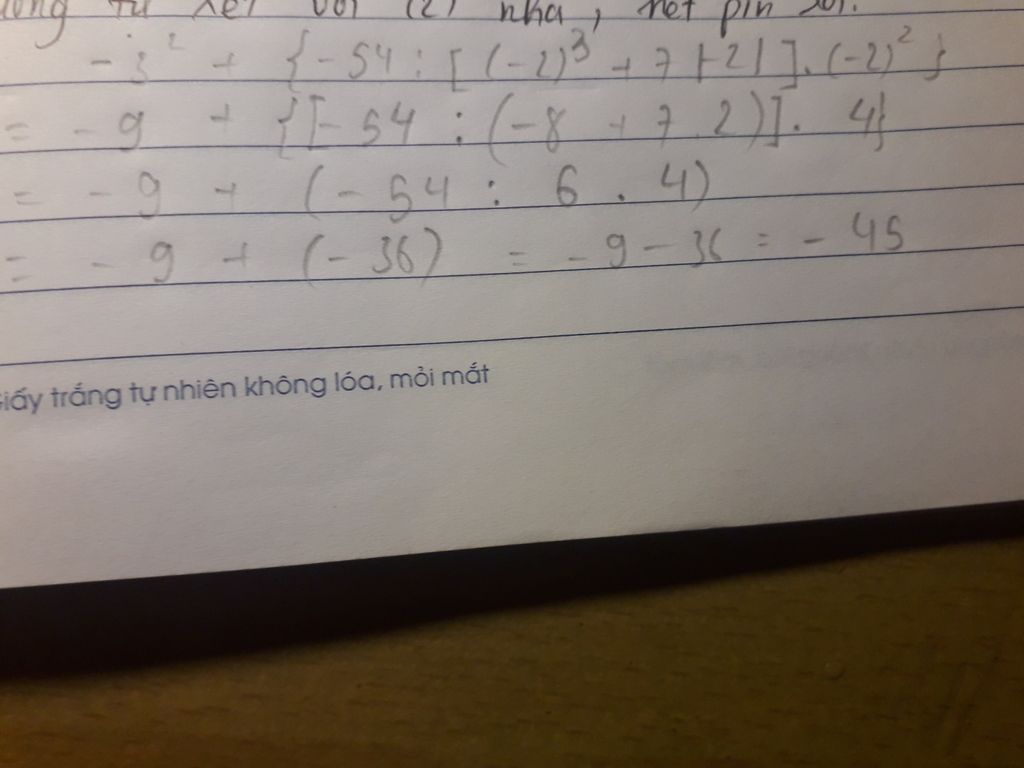 tự xét với (2) nha, hết pin rồi.
- 3² + {- 54 : [(-2)³ + 7 |-2|] . (-2)² }
= - 9 + {[- 54 : (-8 + 7 . 2)] . 4}
= - 9 + (- 54 : 6 . 4)
= - 9 + (- 36) = - 9 - 36 = - 45
Giấy trắng tự nhiên không lóa, mỏi mắt